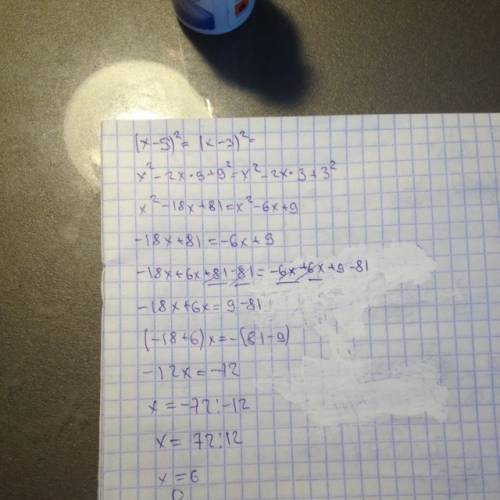 (x-9)²=(x-3)²=
x²-2x·9+9²=x²-2x·3+3²
x²-18x+81=x²-6x+9
-18x+81=-6x+9
-18x+6x+81-81=-6x+6x+9-81
-18x+6x=9-81
(-18+6)x=-(81-9)
-12x=-72
x=-72:-12
x=72:12
x=6